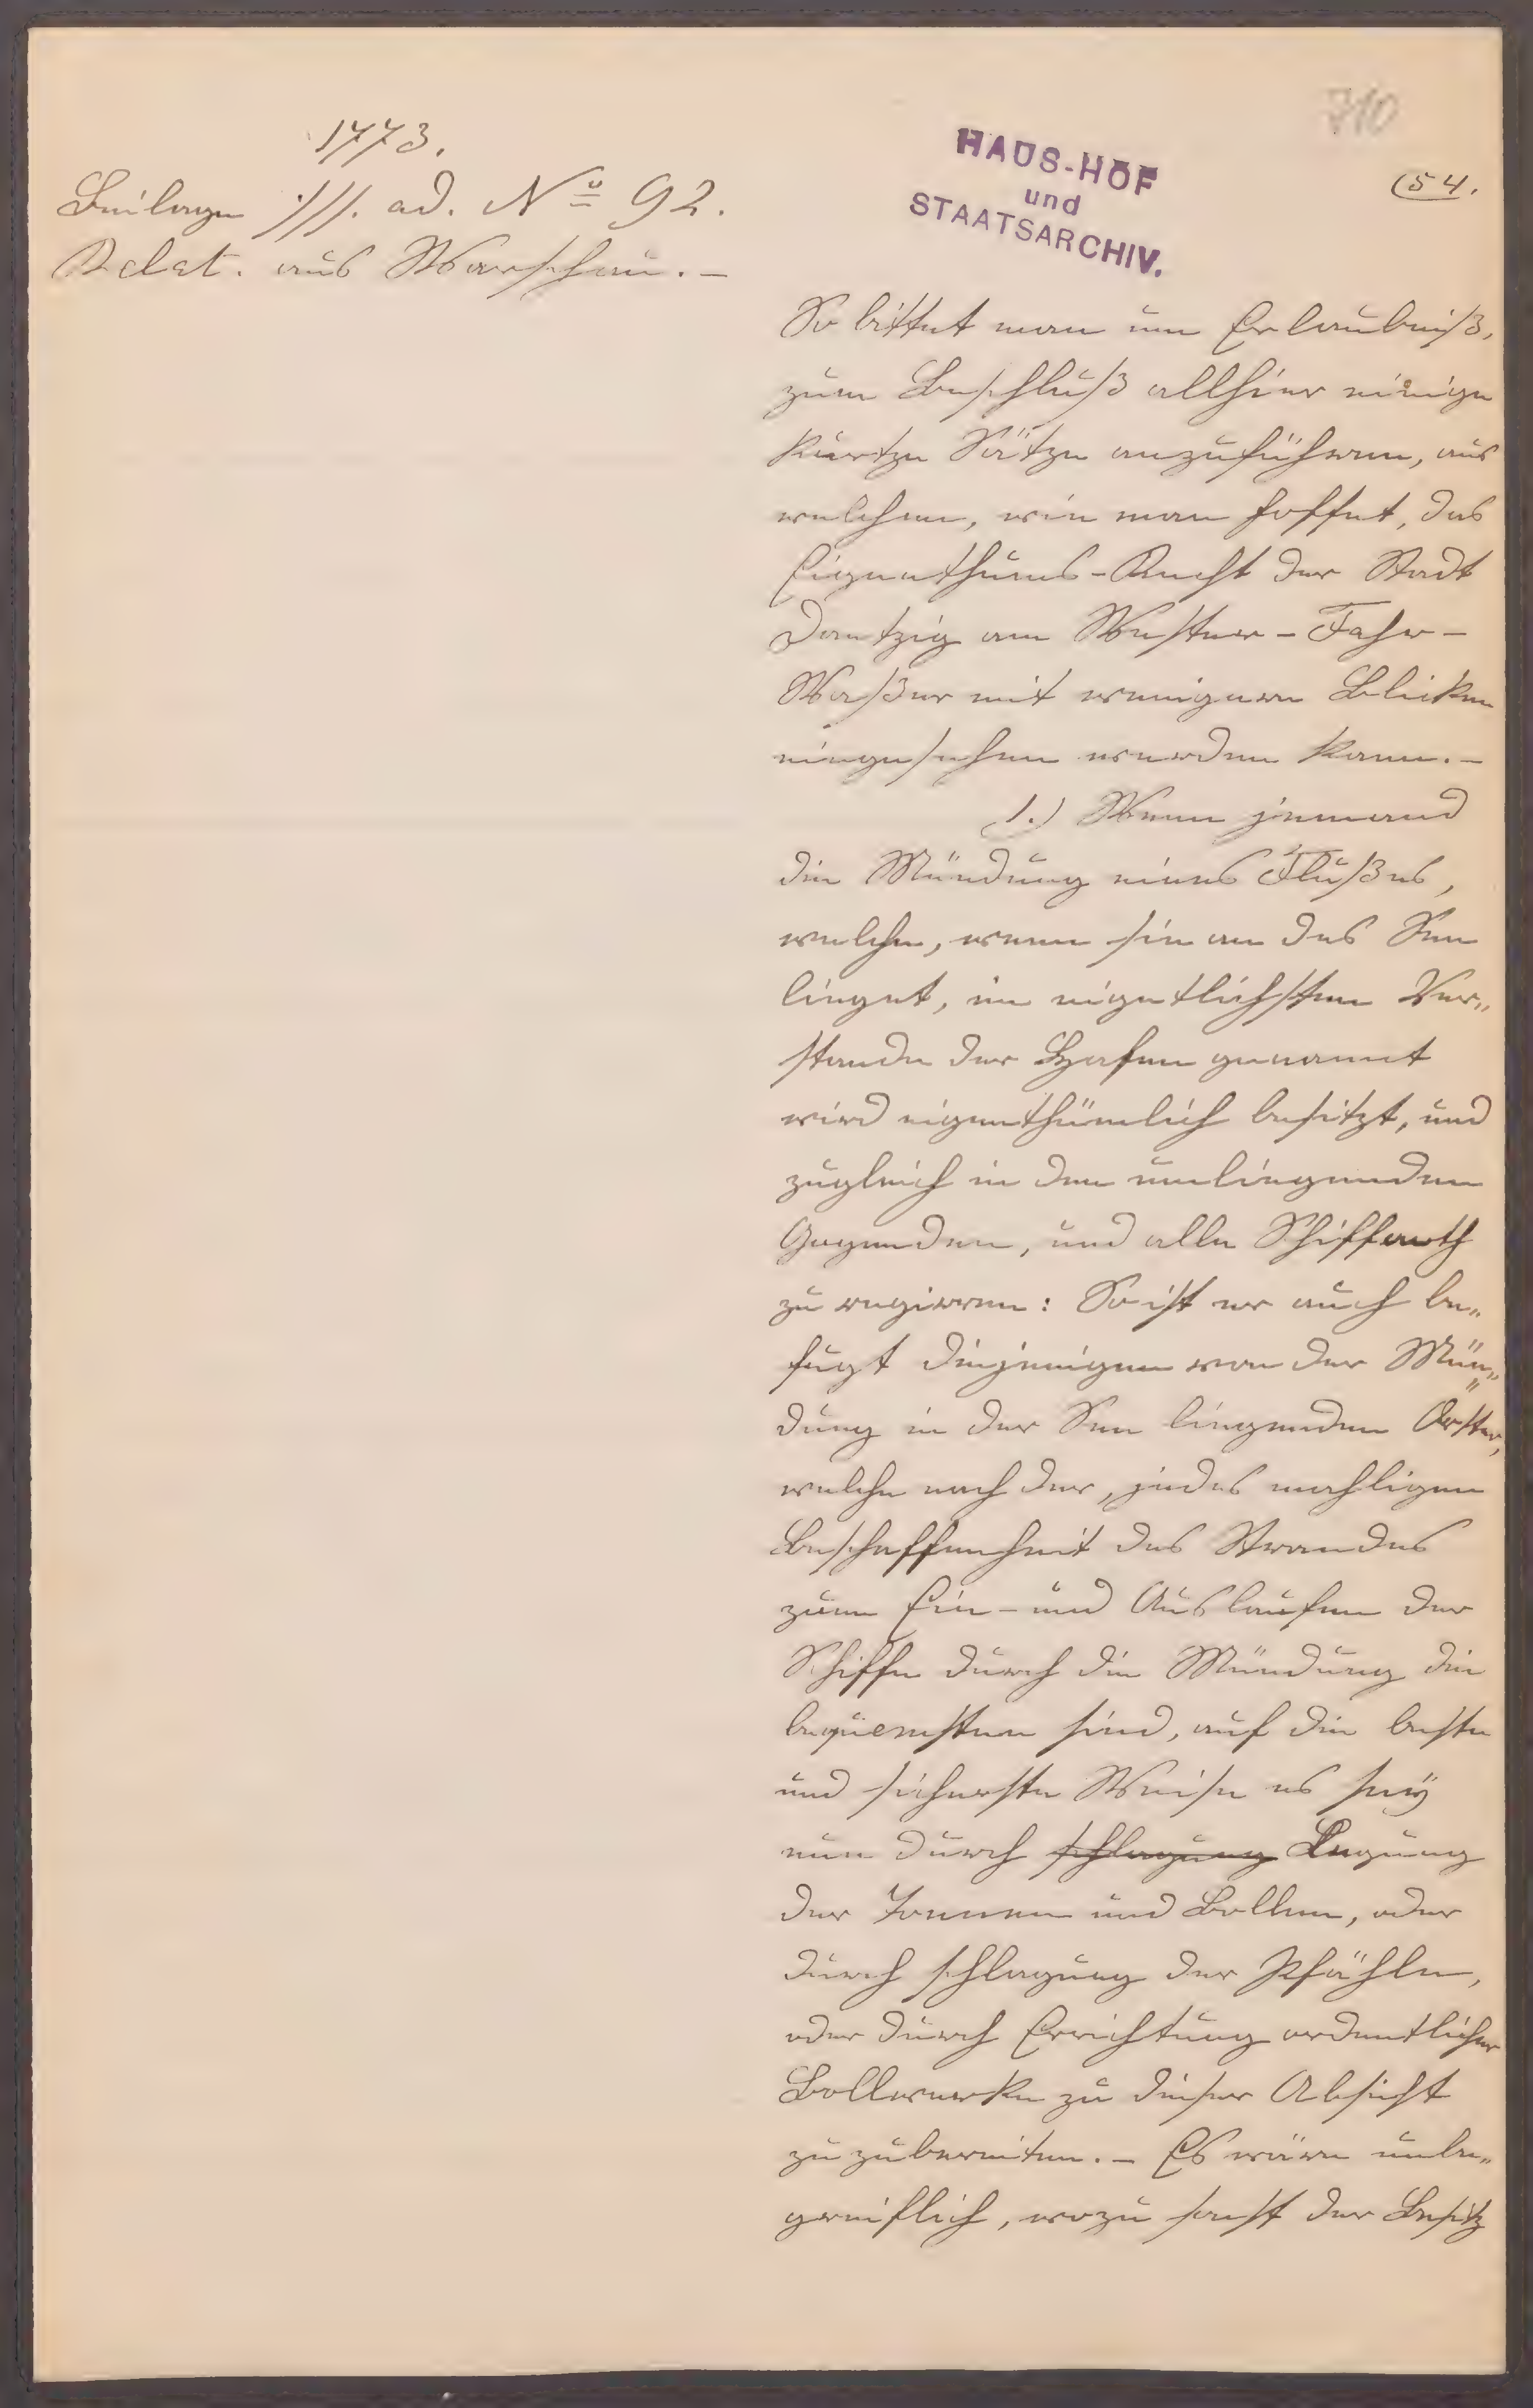 710
1773.
HAUS-HOF
und
STAATSARCHIV.
(54.
Beilagen ://. ad. No 92.
Relat. aus Warschau. –
So bittet man um Erlaubniß,
zum Beschluß allhier einige
kurtze Sätze anzuführen, aus
welchen, wie man hoffet, das
Eigenthums-Recht der Stadt
Dantzig am Wester-Fahr-
Waßer mit wenigern Blicken
eingesehen werden kann. –
1.) Wenn jemand
die Mündung eines Flußes,
welche, wenn sie an das See
lieget, im eigetlichsten Ver„
stande der Hafen genannt
wird eigenthümlich besitzt, und
zugleich in den umliegenden
Gegenden, und alle Schiffarth
zu regieren: So ist er auch be„
fugt diejenigen von der Mün„
dung in der See liegenden Oerter,
welche nach der, jedes mahligen
Beschaffenheit des Strandes
zum Ein- und Auslaufen der
Schiffe durch die Mündung die
bequemsten sind, auf die beste
und sicherste Weise es seÿ
nun durch schlagung Legung
der Tonnen und Bollen, oder
durch schlagung der Pfähle,
oder durch Errichtung ordentlicher
Bollwerke zu dieser Absicht
zu zubereiten. – Es wäre unbe„
greiflich, wozu sonst der Besitz